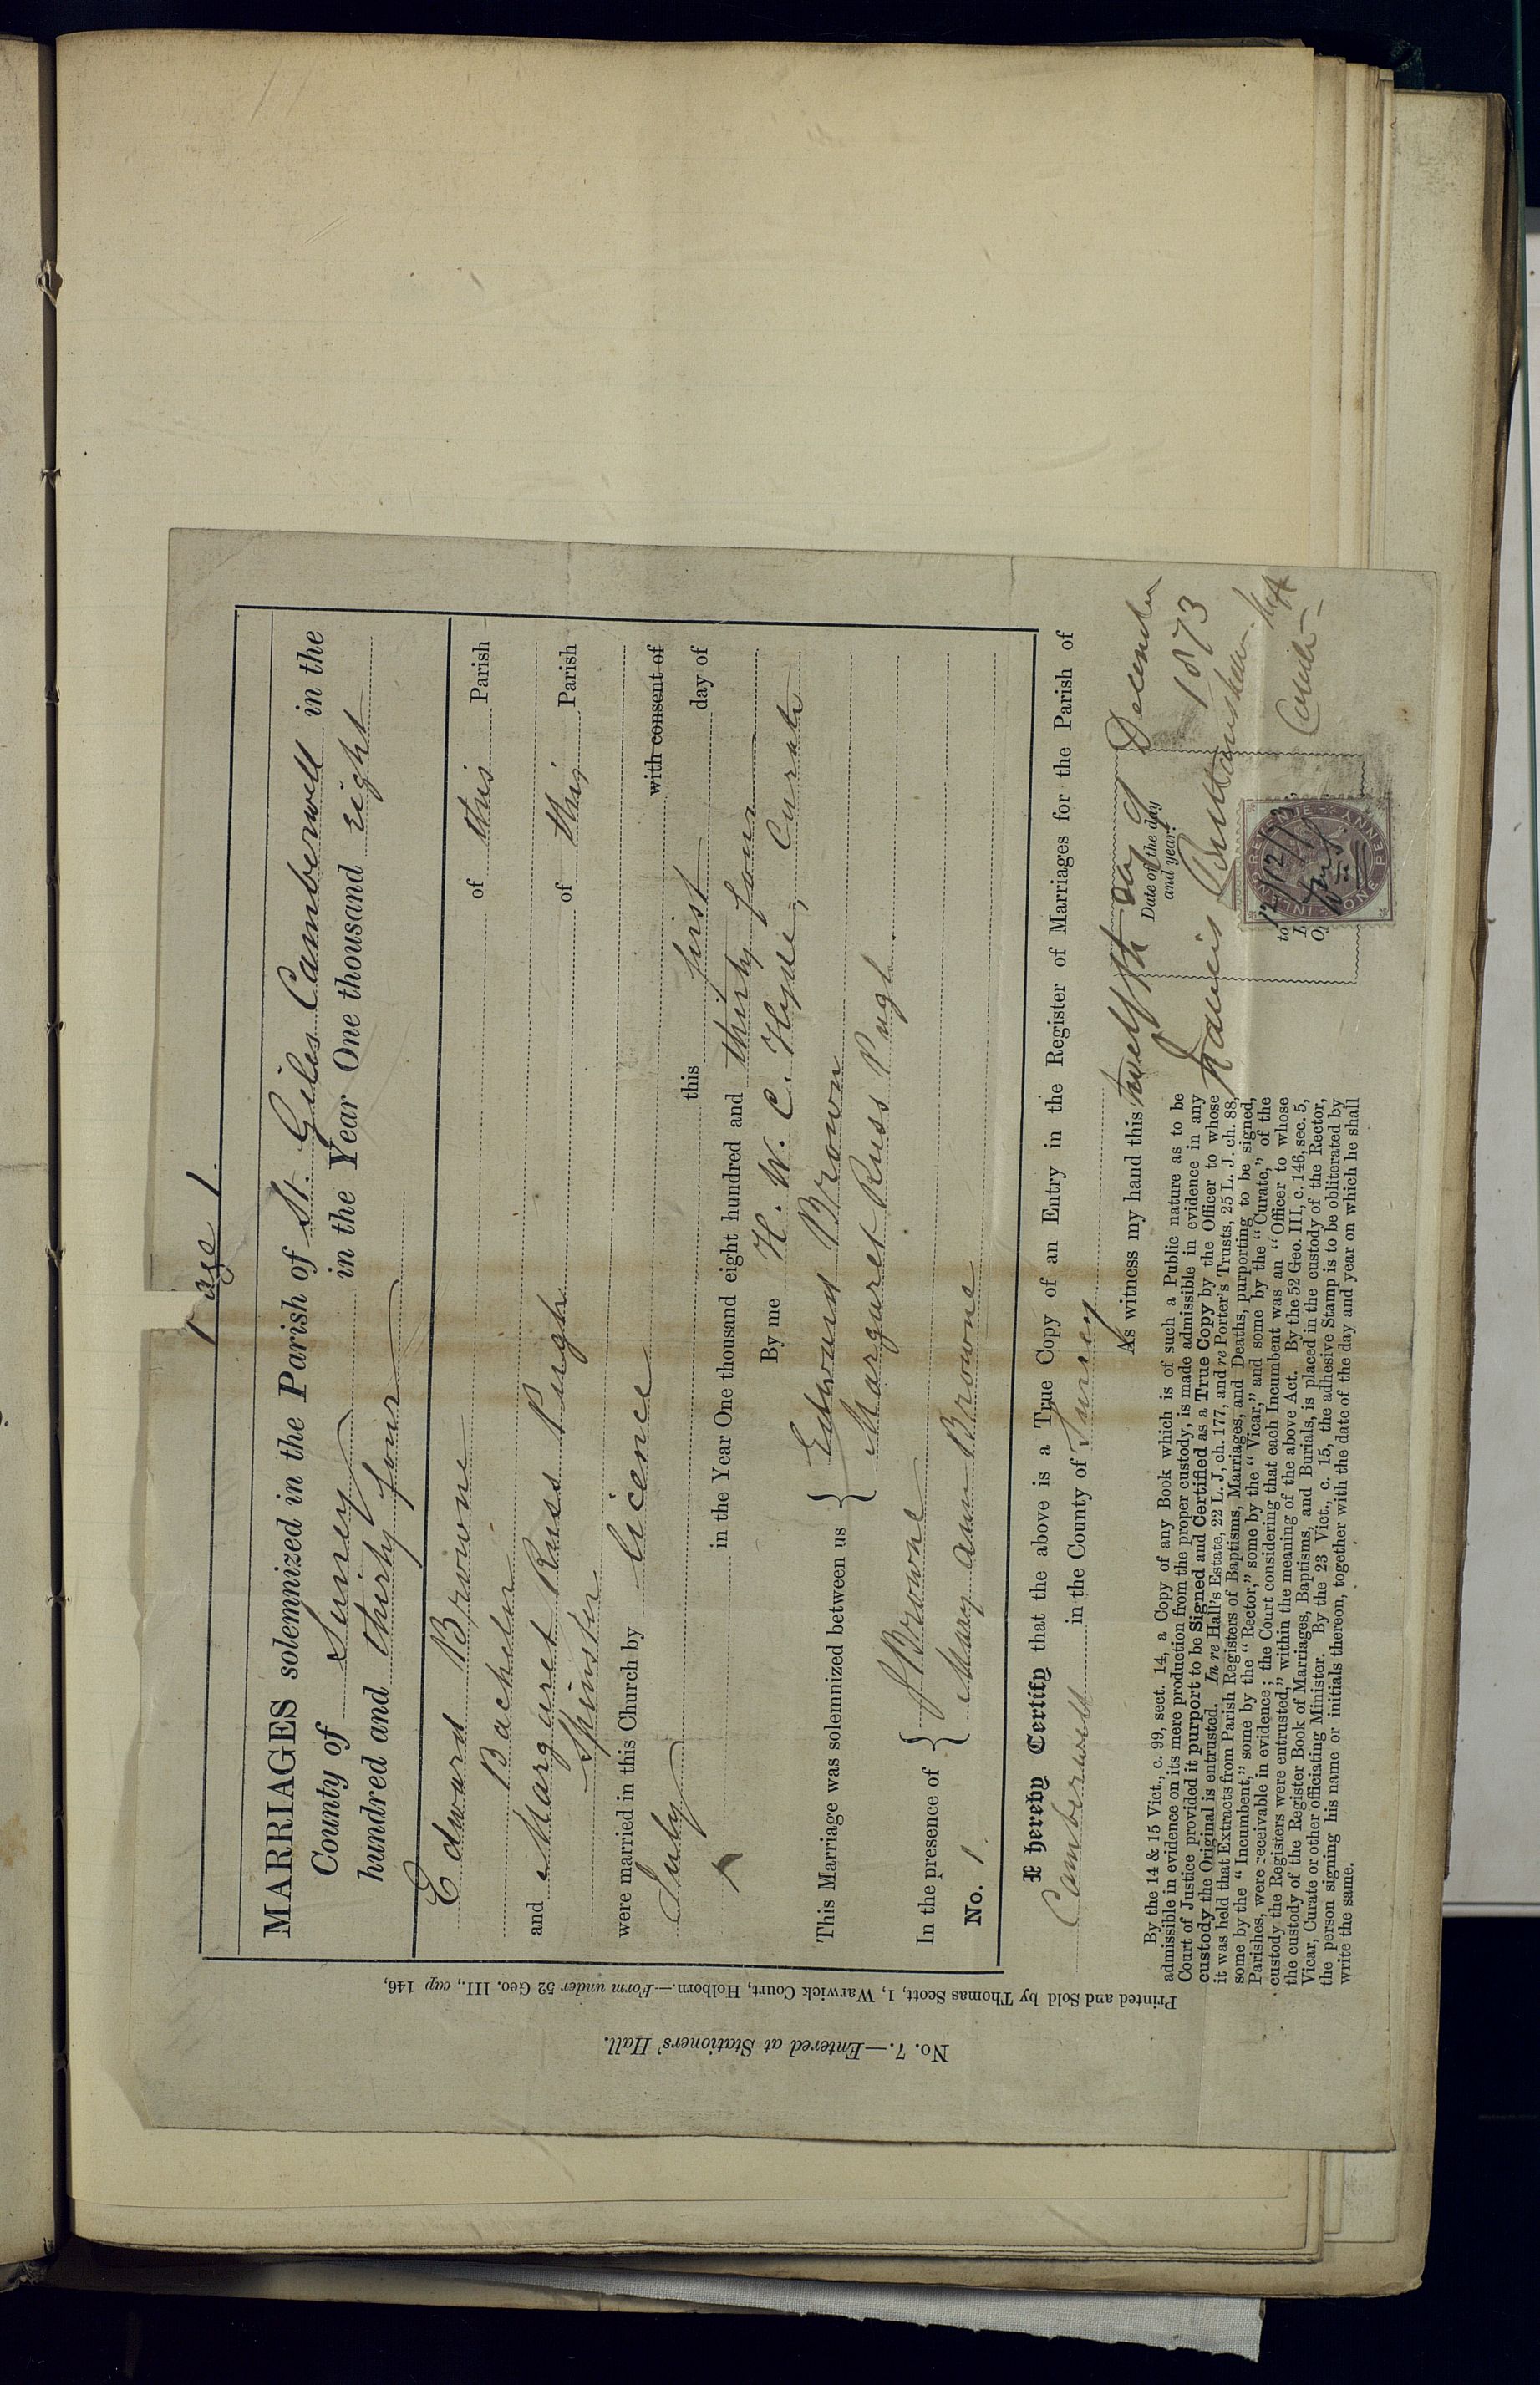 Page 1.
MARRIAGES solemnized in the Parish of St. Giles Camberwell in the
County of Surrey in the Year One thousand eight
hundred and thirty four
Edward Browne of this Parish
Bachelor
and Margaret Russ Pugh of this Parish
Spinster
were married in this Church by licence with consent of
this first day of
July
in the Year One thousand eight hundred and thirty four
By me H. W. C. Hyde, Curate
This Marriage was solemnized between us { Edward Brown
Margaret Russ Pugh
In the presence of { J Browne
Mary Ann Browne
No. 1.
I hereby Certify that the above is a True Copy of an Entry in the Register of Marriages for the Parish of
Camberwell in the County of Surrey
As witness my hand this twelfth day of December
1873
Date of the day
and year.
Francis
Curate
By the 14 & 15 Vict., c. 99, sect. 14, a Copy of any Book which is of such a Public nature as to be
admissible in evidence on its mere production from the proper custody, is made admissible in evidence in any
Court of Justice provided it purport to be Signed and Certified as a True Copy by the Officer to whose
custody the Original is entrusted. In re Hall's Estate, 22 L. J, ch. 177, and re Porter's Trusts, 25 L. J. ch. 88,
it was held that Extracts from Parish Registers of Baptisms, Marriages, and Deaths, purporting to be signed,
some by the "Incumbent," some by the "Rector," some by the "Vicar," and some by the "Curate," of the
Parishes, were receivable in evidence; the Court considering that each Incumbent was an "Officer to whose
custody the Registers were entrusted," within the meaning of the above Act. By the 52 Geo. III, c. 146, sec. 5,
the custody of the Register Book of Marriages, Baptisms, and Burials, is placed in the custody of the Rector,
Vicar, Curate or other officiating Minister. By the 23 Vict., c. 15, the adhesive Stamp is to be obliterated by
the person signing his name or initials thereon, together with the date of the day and year on which he shall
write the same.
INLAND REVENUE
ONE PENNY
12/12/73
Printed and Sold by Thomas Scott, 1, Warwick Court, Holborn.—Form under 52 Geo. III., cap 146,
No. 7.—Entered at Stationers' Hall.